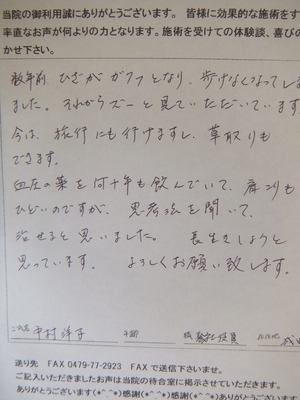 当院の御利用誠にありがとうございます。 皆様に効果的な施術をす
率直なお声が何よりの力となります。施術を受けての体験談、喜びの
かせ下さい。
数年前 ひざがガクッとなり、歩けなくなってしま
ました。それからズーと見ていただいています
今は、旅行にも行けますし、草取りも
できます。
血圧の薬を何十年も飲んでいて、肩こりも
ひどいのですが、思考法を聞いて、
治せると思いました。 長生きしようと
思っています。 よろしくお願い致します。
中村洋子
年齢
職
送り先 FAX 0479-77-2923 FAXで送信下さいませ。
ご記入いただきましたお声は当院の待合室に掲示させていただきます。
ありがとうございます(*^^*)感謝(*^^*)感謝(*^^*)ありがとうございます